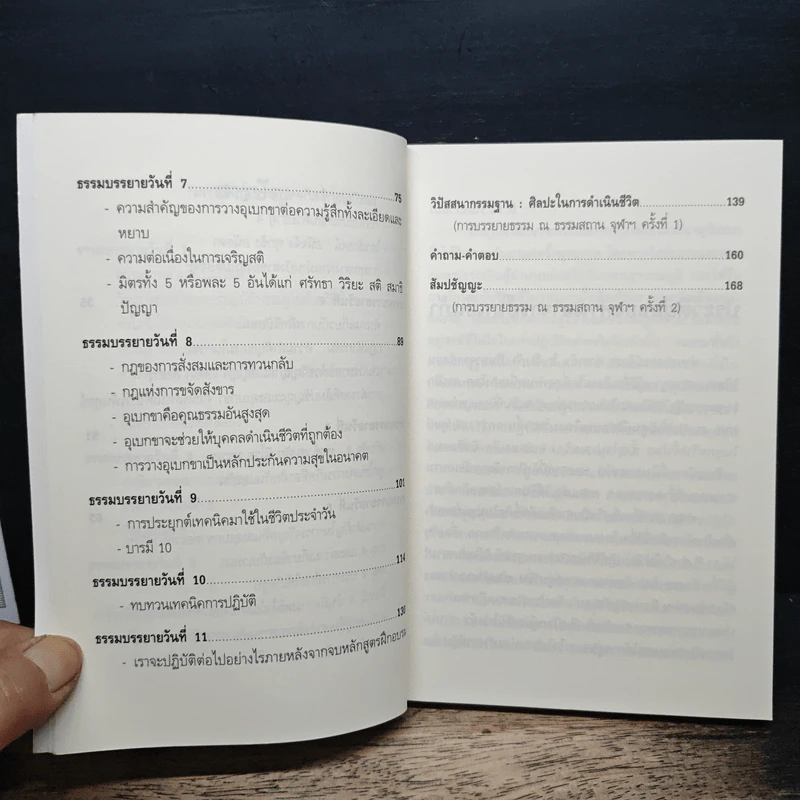 ธรรมบรรยายวันที่ 7 75
- ความสำคัญของการวางอุเบกขาต่อความรู้สึกทั้งละเอียดและ
หยาบ
- ความต่อเนื่องในการเจริญสติ
- มิตรทั้ง 5 หรือพละ 5 อันได้แก่ ศรัทธา วิริยะ สติ สมาธิ
ปัญญา
ธรรมบรรยายวันที่ 8 89
- กฎของการสั่งสมและการทวนกลับ
- กฎแห่งการขจัดสังขาร
- อุเบกขาคือคุณธรรมอันสูงสุด
- อุเบกขาจะช่วยให้บุคคลดำเนินชีวิตที่ถูกต้อง
- การวางอุเบกขาเป็นหลักประกันความสุขในอนาคต
ธรรมบรรยายวันที่ 9 101
- การประยุกต์เทคนิคมาใช้ในชีวิตประจำวัน
- บารมี 10
ธรรมบรรยายวันที่ 10 114
- ทบทวนเทคนิคการปฏิบัติ
ธรรมบรรยายวันที่ 11 130
- เราจะปฏิบัติต่อไปอย่างไรภายหลังจากจบหลักสูตรฝึกอบรม
วิปัสสนากรรมฐาน : ศิลปะในการดำเนินชีวิต 139
(การบรรยายธรรม ณ ธรรมสถาน จุฬาฯ ครั้งที่ 1)
คำถาม-คำตอบ 160
สัมปชัญญะ 168
(การบรรยายธรรม ณ ธรรมสถาน จุฬาฯ ครั้งที่ 2)